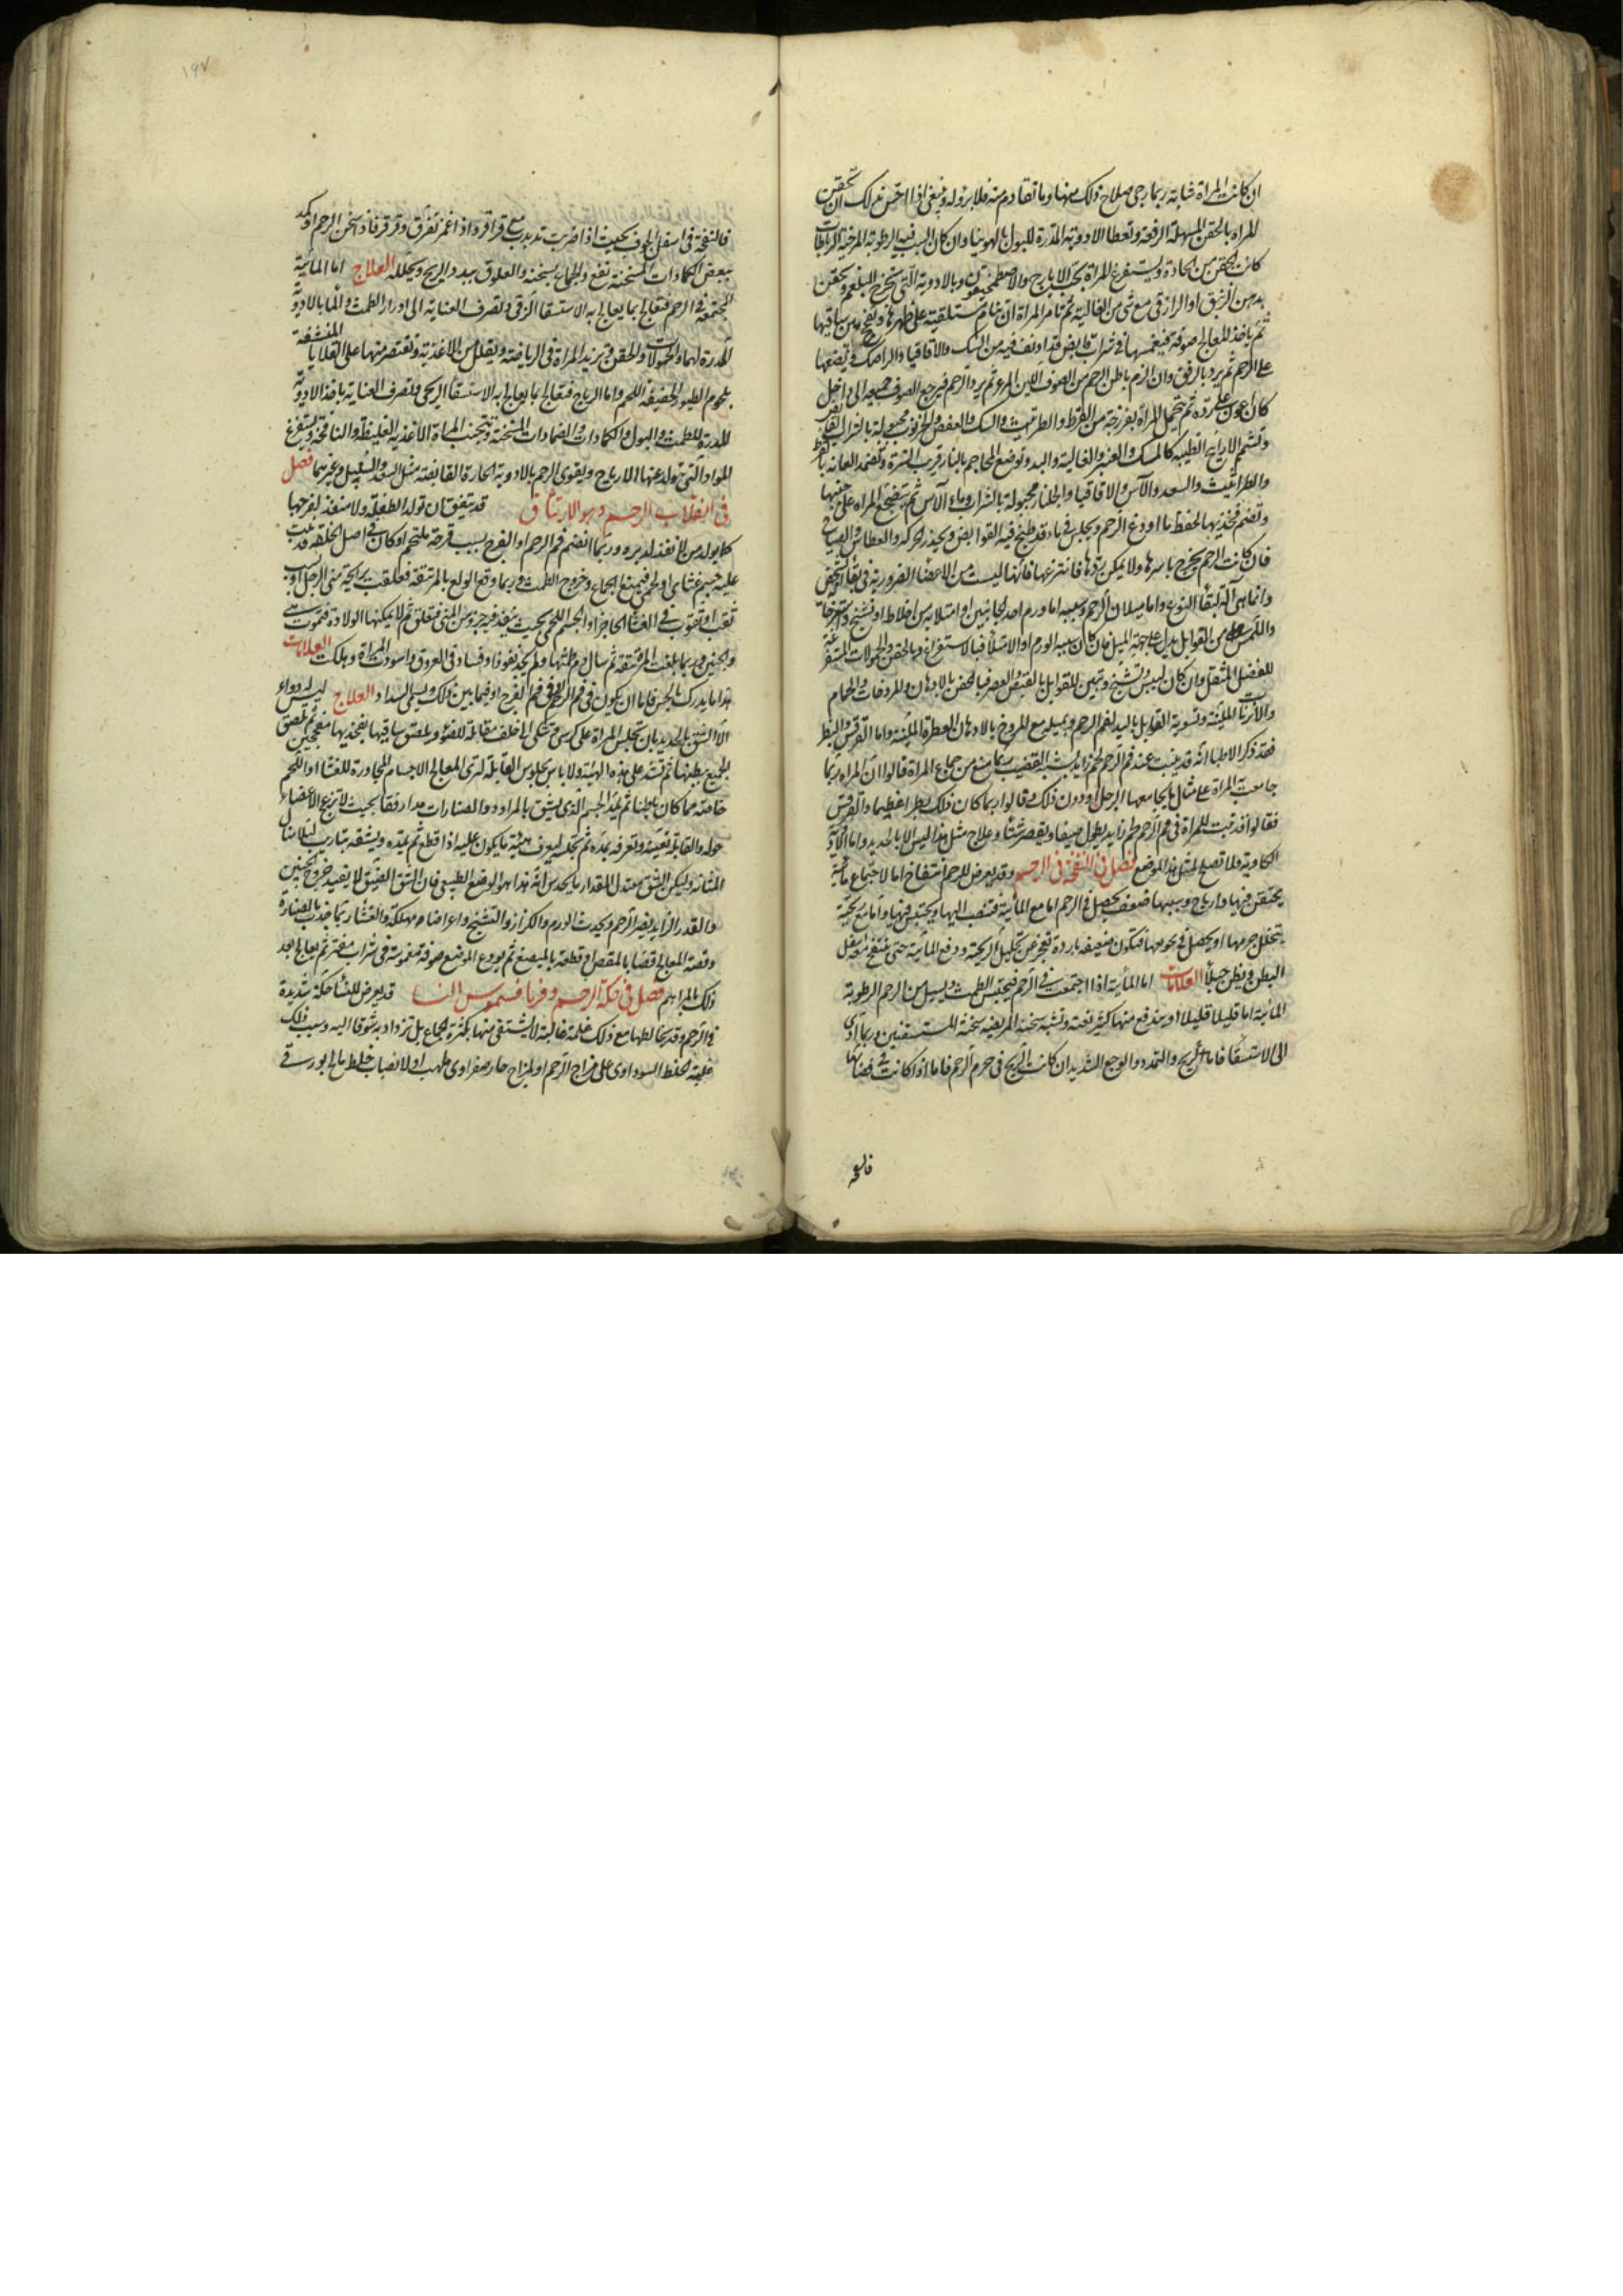 ان كانت المراة شابة ربما رجى صلاح ذلك منها وما تقادم منه فلا برو له وينبغى اذا احس بذلك ان تحقن
المراه بالحقن المسهلة الرفعة وتعطا الادوية المدرة للبول بالهوينا وان كان السبب فيه الرطوبة المرخية الرباطات
كانت الحقن من الحادة ويستفرغ المراة بحب الايارج والاصطمخيقون وبالادوية التى تخرج البلغم وتحقن
بدهن الزنبق او الرازقى مع شى من الغالية ثم تامر المراة ان تنام مستلقية على ظهرها وتفحج بين ساقيها
ثم ياخذ المعالج صوفة فيغمسها فى شراب قابض قد اديف فيه من السك والاقاقيا والرامك ويضعها
على الرحم ثم يرد بالرفق وان الزم باطن الرحم من الصوف اللين المرعزى ثم يرد الرحم فيرجع الصوف جميعه الى داخل
كان اعون على رده ثم تحتمل المراة بفرزجة من القرظ والطراثيث والسك والعفص والخرنوب معجونة بالشراب القابض
وتشم الاراييح الطيبه كالمسك والعنبر والغالية والند وتوضع المحاجم بالنار قريب السرة وتضمد العانة بالقرظ
والطراثيث والسعد والآس والاقاقيا والجلنار معجونة بالشراب وماء الآس ثم تضجع المراه على جنبها
وتضم فخذيها لحفظ ما اودع الرحم وتجلس فى ماء قد طبخ فيه القوابض ويحذر الحركه والعطاس والصياح
فان كانت الرحم تخرج باسرها ولا يمكن ردها فانتزعها فانها ليست من الاعضا الضرورية فى بقا الشخص
وانما هى آلة لبقا النوع واما ميلان الرحم وسببه اما ورم احد الجانبين او امتلاء من اخلاط او تشنج واسترخا
واللمس من القوابل يدل على جهة الميل فان كان سببه الورم او الامتلا فبالاستفراغ وبالحقن والحمولات المستفرغة
للفضل المثقل وان كان ليبس وتشنج وتبين للقوابل بالقبض والعصر فبالحقن بالادهان والمروخات والحمام
والابزنات الملينة وتسوية القوابل باليد لفم الرحم وتميله مع المروخ بالادهان العطرة الملينة واما القرقس والبظر
فقد ذكر الاطبا انه قد ينبت عند فم الرحم لحم زايد يشبه القضيب ربما منع من جماع المراة قالوا ان المراه ربما
جامعت المراة على مثال ما يجامعها الرجل او دون ذلك وقالوا ربما كان ذلك بظرا عظيما واما القرقس
فقالوا قد نبت للمراة فى فم الرحم لحم زايد يطول صيفا ويقصر شتأ وعلاج مثل هذا ليس الا بالحديد واما الادوية
الكاوية فلا تصلح لمثل هذا الموضع فصل فى النفخة فى الرحم وقد يعرض للرحم انتفاخ اما لاجتماع مائية
يحتقن فيها وارياح وسببها ضعف يحصل فى الرحم اما مع المائية فتنصب اليها ويحتقن فيها واما مع ريحية
يتخلل جرمها او يحصل فى تجويفها فيكون ضعيفة باردة تعجز عن تحليل الريحية ودفع المائية حتى ينتفخ معه اسفل
البطن ويظن حبلاً العلامات اما المأية اذا اجتمعت فى الرحم فيحتبس الطمث ويسيل من الرحم الرطوبة
المائية اما قليلا قليلا او يندفع منها كثير دفعة وتشبه سخنة المريضه سخنة المستسقيين وربما ادى
الى الاستسقا فاما الريح والتمدد والوجع الشديد ان كانت الريح فى جرم الرحم فاما اذا كانت فى فضائها
فالنفخة
١٩٧
فالنفخة فى اسفل الجوف بحيث اذا ضربت تدبدب مع قراقر واذا غمز تفرق وقرقر فاذا سخن الرحم او كمد
ببعض الكمادات المسخنة نفع والجماع يسخنه والعلوق يبدد الريح ويحلله العلاج اما المائية
المجتمعة فى الرحم فتعالج بما يعالج به الاستسقا الزقى ولتصرف العناية الى ادرار الطمث والما بالادوية
المدرة لهما والحمولات والحقن وتزيد المراة فى الرياضة ويقلل من الاغذية وتقتصر منها على القلايا المنشفة
بلحوم الطيور الخفيفة اللحم واما الرياح فتعالج بما يعالج به الاستسقا الريحى ولتصرف العناية باخذ الادوية
المدرة للطمث والبول والكمادات والضمادات المسخنة وتتجنب المراة الاغذية الغليظة والنافخة ويستفرغ
المواد التى يتولد عنها الارياح ويقوى الرحم بالادوية الحارة القابضة مثل السعد والسنبل وغيرهما فصل
فى انغلاق الرحم وهو الارتتاق قد يتفق ان تولد الطفلة ولا منفذ لفرجها
كما يولد من لا منفذ لدبره وربما انضم فم الرحم او الفرج بسبب قرحة يلتحم او كان فى اصل الخلقه قد نبت
عليه جسم غشائى او لحمى فيمنع الجماع وخروج الطمث وربما وقع الولوع بالمرتتقة فعلقت برايحة منى الرجل او بسبب
ثقب او ثقوب فى الغشا الحاجز او الجسم اللحمى بحيث ينفذ فيه جزو من المنى فتعلق ثم لا يمكنها الولادة فتموت هى
والجنين وربما بلغت المرتتقة ثم سال دم طمثها ولم يجد نفوذا وفساد فى العروق واسودت المراة وهلكت العلامات
هذا ما يدرك بالحس فاما ان يكون فى فم الرحم او فى فم الفرج او فيما بين ذلك وليسمى السداد العلاج ليس له دواء
الا الشق بالحديد بان تجلس المراة على كرسى وتتكى الى خلف مقابلة للضوء ويلصق ساقيها بفخذيها مفحجين ثم يلصق
الجميع ببطنها ثم تشد على هذه الهيئة ولا باس بجلوس القابلة لترى المعالج الاجسام المجاورة للغشا او اللحم
خاصة مما كان باطنا ثم يمد الجسم الذى يشق بالمراود والصنارات مدا رفقا بحيث لا تزعج الاعضاء
حوله والقابلة تعينه وتعرفه بمده ثم تخليه ليعرف هيئة ما يكون عليه اذا قطع ثم يمده ويشقه بتأريب ليلا ينال
المثانة وليكن الشق معتدل المقدار ما يحدس انه هذا هو الوضع الطبيعى فان الشق الضيق لا يفيد خروج الجنين
والقدر الزايد يضر الرحم ويحدث الورم والكزاز والتشنج واعراضا مهلكة والغشا ربما جذب بالصنارة
وقصه المعالج قصا بالمقص او قطعه بالمبضع ثم يودع الموضع صوفة مغموسة فى شراب مفتر ثم يعالج بعد
ذلك بالمراهم فصل فى حكة الرحم وفريافسموس النسا قد يعرض للنسأ حكة شديدة
فى الرحم وقد يخالطها مع ذلك غلمة غالبة لا يشتفى منها بكثرة الجماع بل تزداد به شوقا اليه وسبب ذلك
غلبة الخلط السوداوى على مزاج الرحم او لمزاج حار صفراوى ملهب او لانصباب خلط مالح بورقى